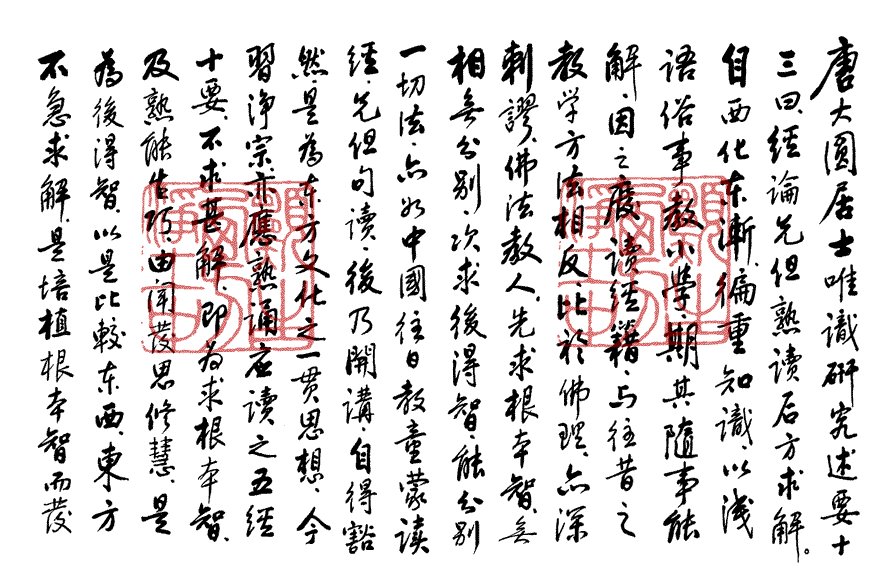 唐大圆居士唯識研究述要十
三曰、經論先但熟读后方求解。
自西化东漸、徧重知識、以淺
語俗事教小學、期其隨事能
解、因之废读經籍、与往昔之
教学方法相反、比於佛理、亦深
刺謬、佛法教人、先求根本智、無
相無分别、次求後得智、能分别
一切法、亦如中國往日教童蒙读
經、先但句读、後乃開講、自得豁
然、是為东方文化之一贯思想、今
習净宗亦應熟誦应读之五經
十要、不求甚解、即为求根本智、
及熟能生巧、由闻發思修慧、是
為後得智、以是比較东西、東方
不急求解、是培植根本智而發
願生西方
净土中